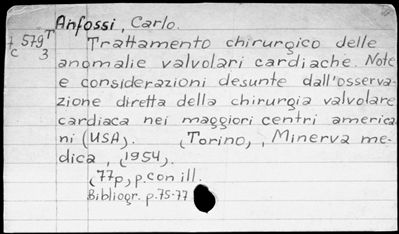 Anfossi, Carlo.
7c 579 T3
Trattamento chirurgico delle
anomalie valvolari cardiache. Note
e considerazioni desunte dall'osserva-
zione diretta della chirurgia valvolare
cardiaca nei maggiori centri america
ni (USA). (Torino,, Minerva me-
dica, (1954).
(77p, p.con ill.
Bibliogr. p.75-77